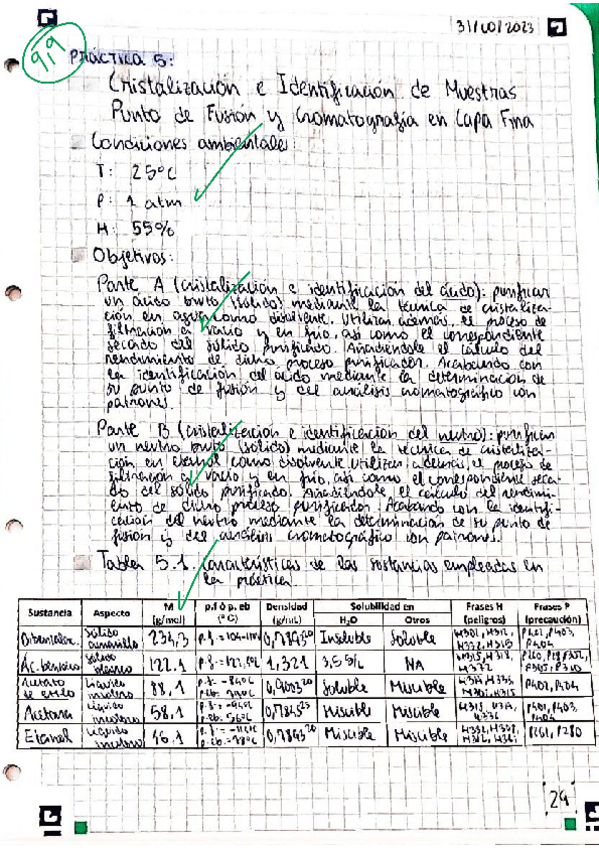 31/10/2023
9/9
PRÁCTICA 5:
Cristalización e Identificación de Muestras
Punto de Fusión y Cromatografía en Capa Fina
Condiciones ambientales:
T: 25ºC
P: 1 atm
H: 55%
Objetivos:
Parte A (cristalización e identificación del ácido): purificar
un ácido bruto (sólido) mediante la técnica de cristaliza-
ción en agua como disolvente. Utilizar, además, el proceso de
filtración a vacío y en frío, así como el correspondiente
secado del sólido purificado. Añadiéndole el cálculo del
rendimiento de dicho proceso purificador. Acabando con
la identificación del ácido mediante la determinación de
su punto de fusión y del análisis cromatográfico con
patrones.
Parte B (cristalización e identificación del neutro): purificar
un neutro bruto (sólido) mediante la técnica de cristaliza-
ción en etanol como disolvente. Utilizar además, el proceso de
filtración a vacío y en frío, así como el correspondiente seca-
do del sólido purificado. Añadiéndole, el cálculo del rendimi-
ento de dicho proceso purificador. Acabando con la identifi-
cación del neutro mediante la determinación de su punto de
fusión y del análisis cromatográfico con patrones.
Tabla 5.1. Características de las sustancias empleadas en
la práctica.
Sustancia Aspecto M (g/mol) p.f ó p. eb (º C) Densidad (g/mL) Solubilidad en H₂O Otros Frases H (peligros) Frases P (precaución)
sólido amarillo 234,3 Insoluble Soluble
Ác. benzoico sólido blanco 122.1 1,321 3,5 g/L NA
Acetato de etilo Líquido incoloro 88,1 Soluble Miscible P403
Acetona Líquido incoloro 58,1 Miscible Miscible
Etanol Líquido incoloro 46.1 0,7893²⁰ Miscible Miscible P261, P280
29